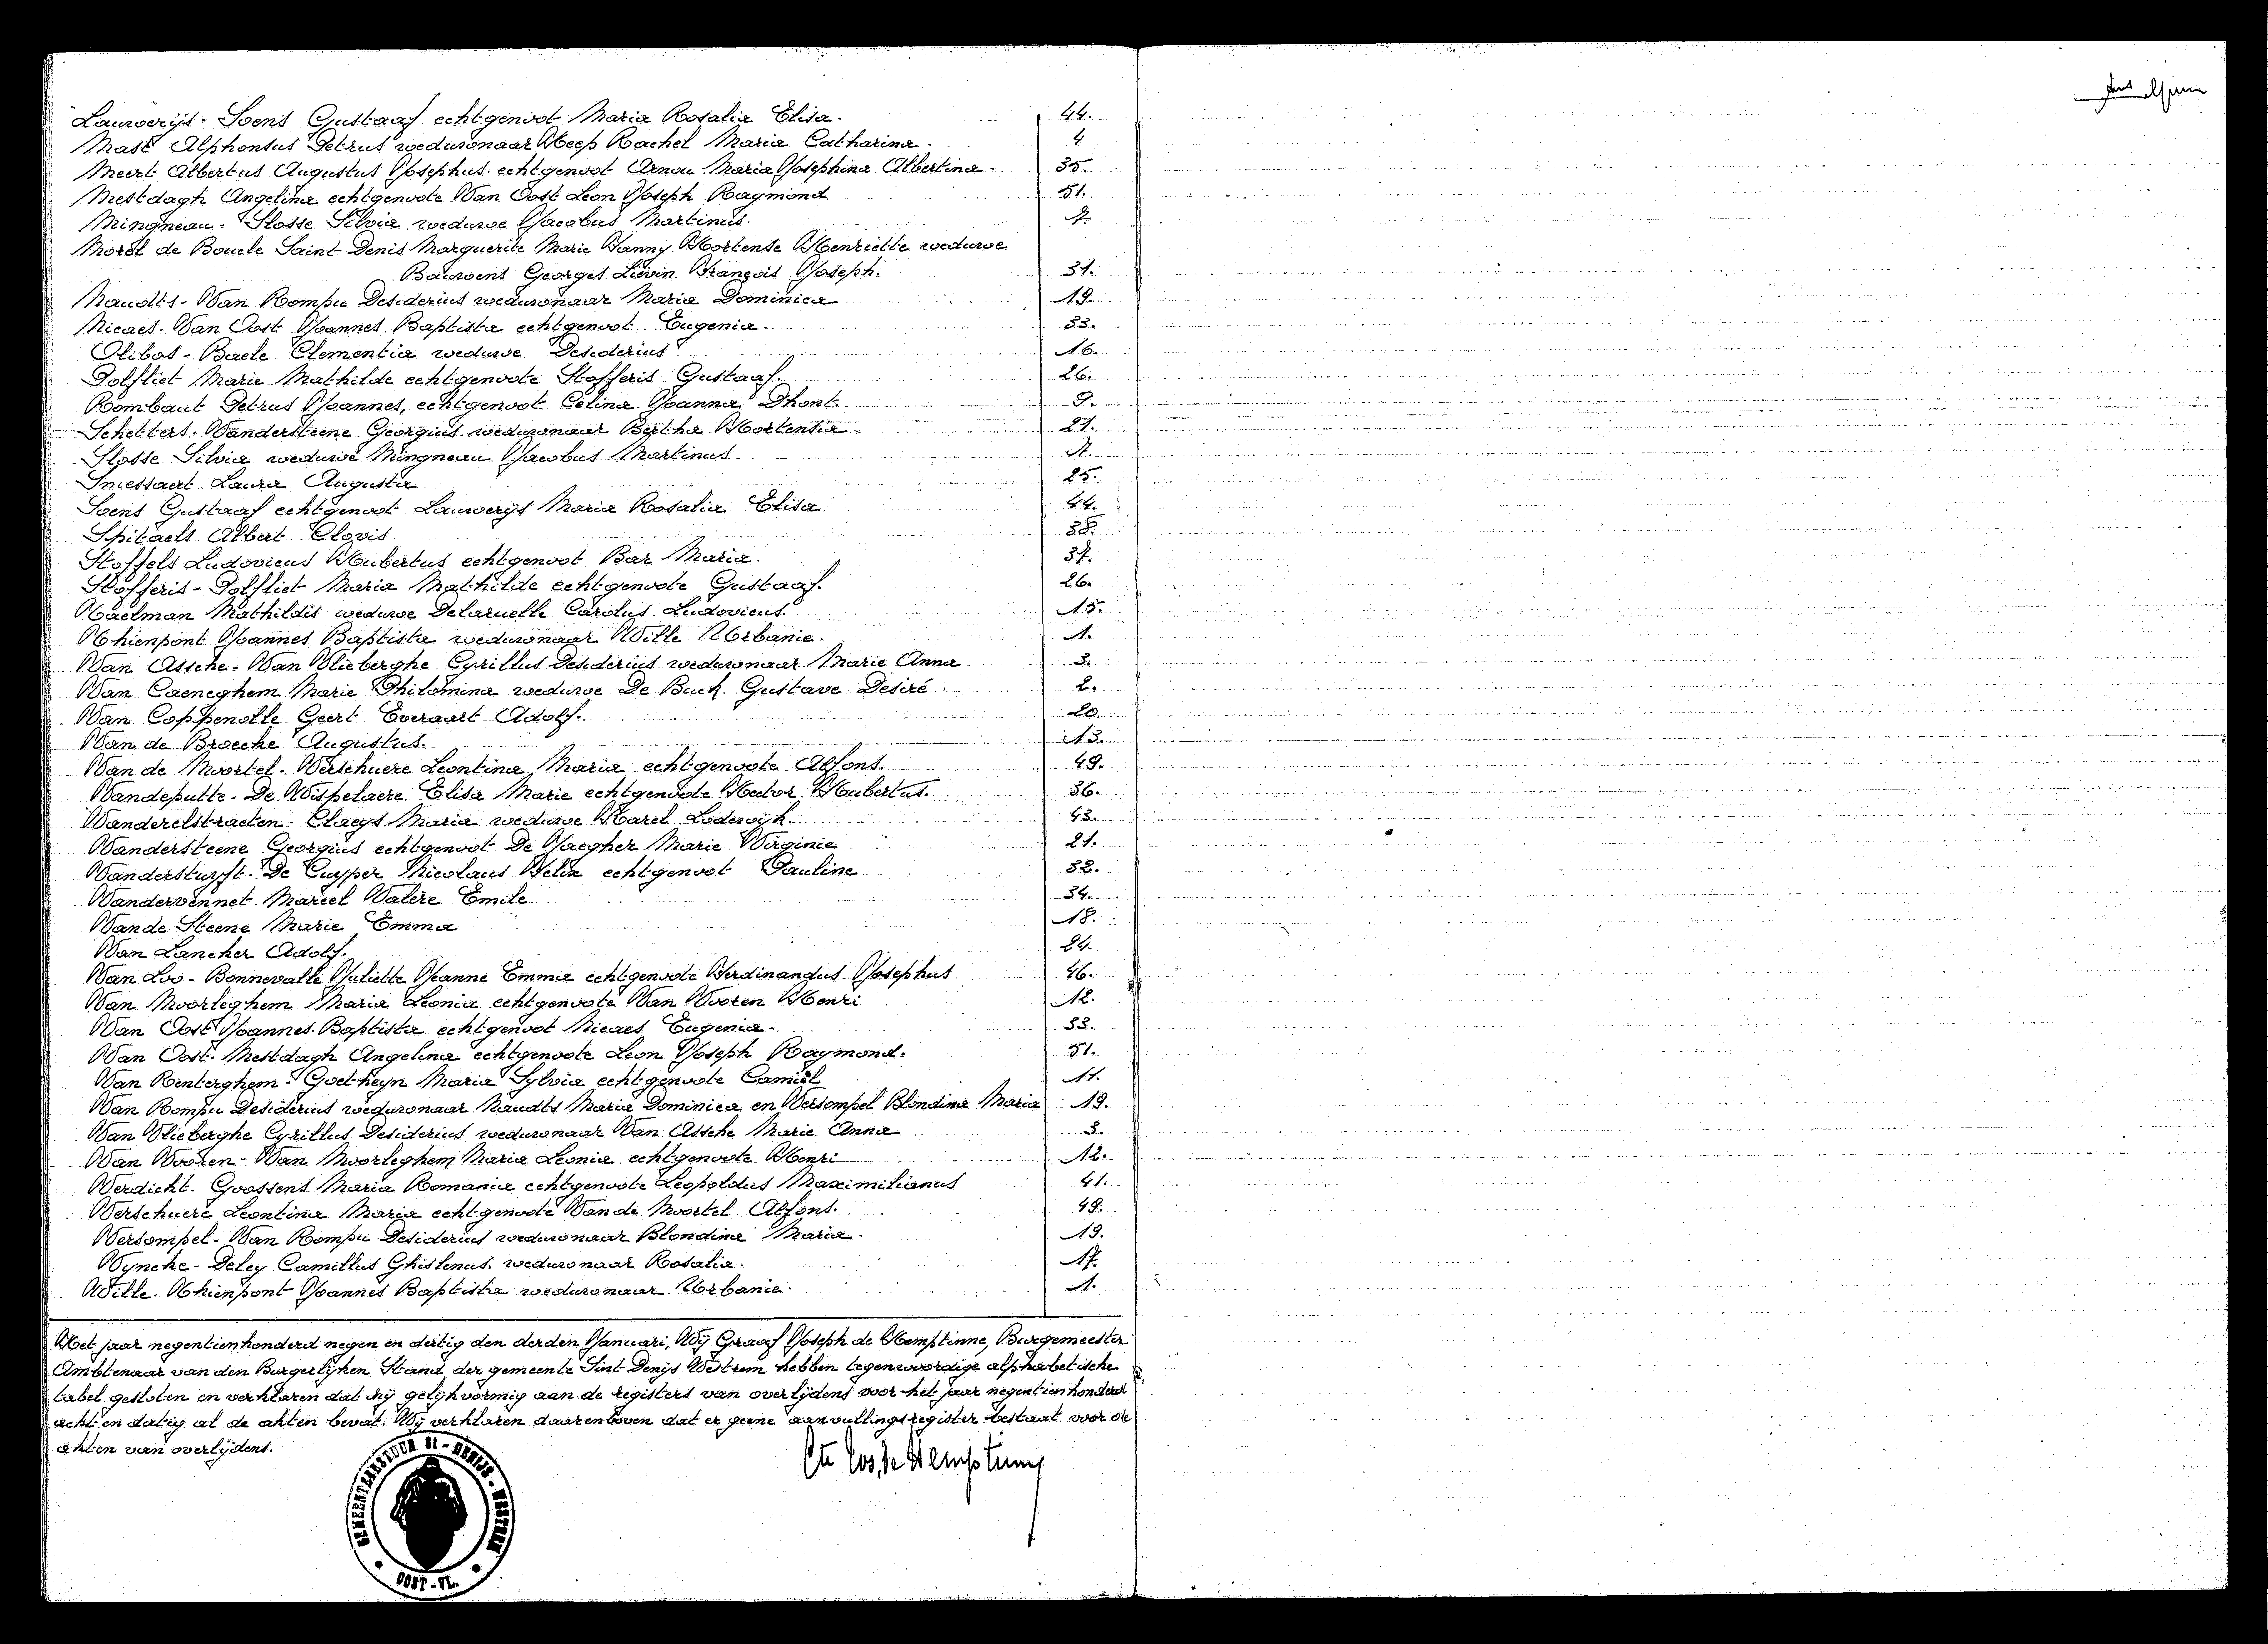 Lauwerijs - Soens Gustaaf echtgenoot Maria Rosalia Elisa. 44.
Mast Alphonsus Petrus weduwnaar Heep Rachel Maria Catharina. 4
Meert Albertus Augustus Josephus echtgenoot Arnou Maria Josephina Albertina. 35.
Mestdagh Angelina echtgenoote Van Oost Leon Joseph Raymond 51.
Mingneau - Slosse Silvia weduwe Jacobus Martinus. 7.
Morel de Boucle Saint Denis Marguerite Marie Fanny Hortense Henriette weduwe
Bauwens Georges Liévin François Joseph. 31.
Naudts - Van Rompu Desiderius weduwnaar Maria Dominica 19.
Nicaes - Van Oost Joannes Baptista echtgenoot Eugenia. 53.
Olibos - Baele Clementia weduwe Desiderius 16.
Polfliet Marie Mathilde echtgenoote Stofferis Gustaaf. 26.
Rombaut Petrus Joannes, echtgenoot Celina Joanna Dhont. 9.
Schelters - Vandersteene Georgius weduwnaar Bertha Hortensia. 21.
Slosse Silvia weduwe Mingneau Jacobus Martinus. 7.
Smessaert Laura Augusta 25.
Soens Gustaaf echtgenoot Lauwerijs Maria Rosalia Elisa 44.
Spitaels Albert Clovis 38.
Stoffels Ludovicus Hubertus echtgenoot Bar Maria. 37.
Stofferis - Polfliet Maria Mathilde echtgenoote Gustaaf. 26.
Taelman Mathildis weduwe Delaruelle Carolus Ludovicus. 15.
Thienpont Joannes Baptista weduwnaar Wille Urbanie. 1.
Van Assche - Van Vlieberghe Cyrillus Desiderius weduwnaar Marie Anna. 3.
Van Caeneghem Marie Philomina weduwe De Buck Gustave Desiré. 2.
Van Coppenolle Geert Everaert Adolf. 20.
Van de Broecke Augustus. 13.
Van de Moortel - Verschuere Leontina Maria echtgenoote Alfons. 49.
Vandeputte - De Wispelaere Elisa Marie echtgenoote Hector Hubertus. 36.
Vanderelstraeten - Claeys Maria weduwe Karel Lodewijk. 43.
Vandersteene Georgius echtgenoot De Jaegher Marie Virginie 21.
Vandersturft - De Cuyper Nicolaus Felix echtgenoot Pauline 32.
Vandervennet Marcel Valère Emile. 34.
Van de Steene Marie Emma 18.
Van Lancker Adolf. 24.
Van Loo - Bonnevalle Juliette Jeanne Emma echtgenoote Ferdinandus Josephus 46.
Van Moorleghem Maria Leonia echtgenoote Van Vooren Henri 12.
Van Oost Joannes Baptista echtgenoot Nicaes Eugenia. 53.
Van Oost - Mestdagh Angelina echtgenoote Leon Joseph Raymond. 51.
Van Renterghem - Goetheyn Maria Sylvia echtgenoote Camiel 11.
Van Rompu Desiderius weduwnaar Naudts Maria Dominica en Versompel Blondina Maria 19.
Van Vlieberghe Cyrillus Desiderius weduwnaar Van Assche Marie Anna 3.
Van Vooren - Van Moorleghem Maria Leonia echtgenoote Henri 12.
Verdicht - Goossens Maria Romania echtgenoote Leopoldus Maximilianus 41.
Verschuere Leontina Maria echtgenoote Van de Moortel Alfons. 49.
Versompel - Van Rompu Desiderius weduwnaar Blondina Maria. 19.
Vyncke - Deley Camillus Ghislenus weduwnaar Rosalia. 17.
Wille - Thienpont Joannes Baptista weduwnaar Urbanie. 1.
Het jaar negentienhonderd negen en dertig den derden Januari, Wij Graaf Joseph de Hemptinne, Burgemeester
Ambtenaar van den Burgerlijken Stand der gemeente Sint-Denijs Westrem hebben tegenwoordige alphabetische
tabel gesloten en verklaren dat hij gelijkvormig aan de registers van overlijdens voor het jaar negentienhonderd
acht en dertig al de akten bevat. Wij verklaren daarenboven dat er geene aanvullingsregister bestaat voor de
akten van overlijdens.
Cte Jos. de Hemptinne
GEMEENTEBESTUUR ST - DENIJS - WESTREM
OOST - VL.